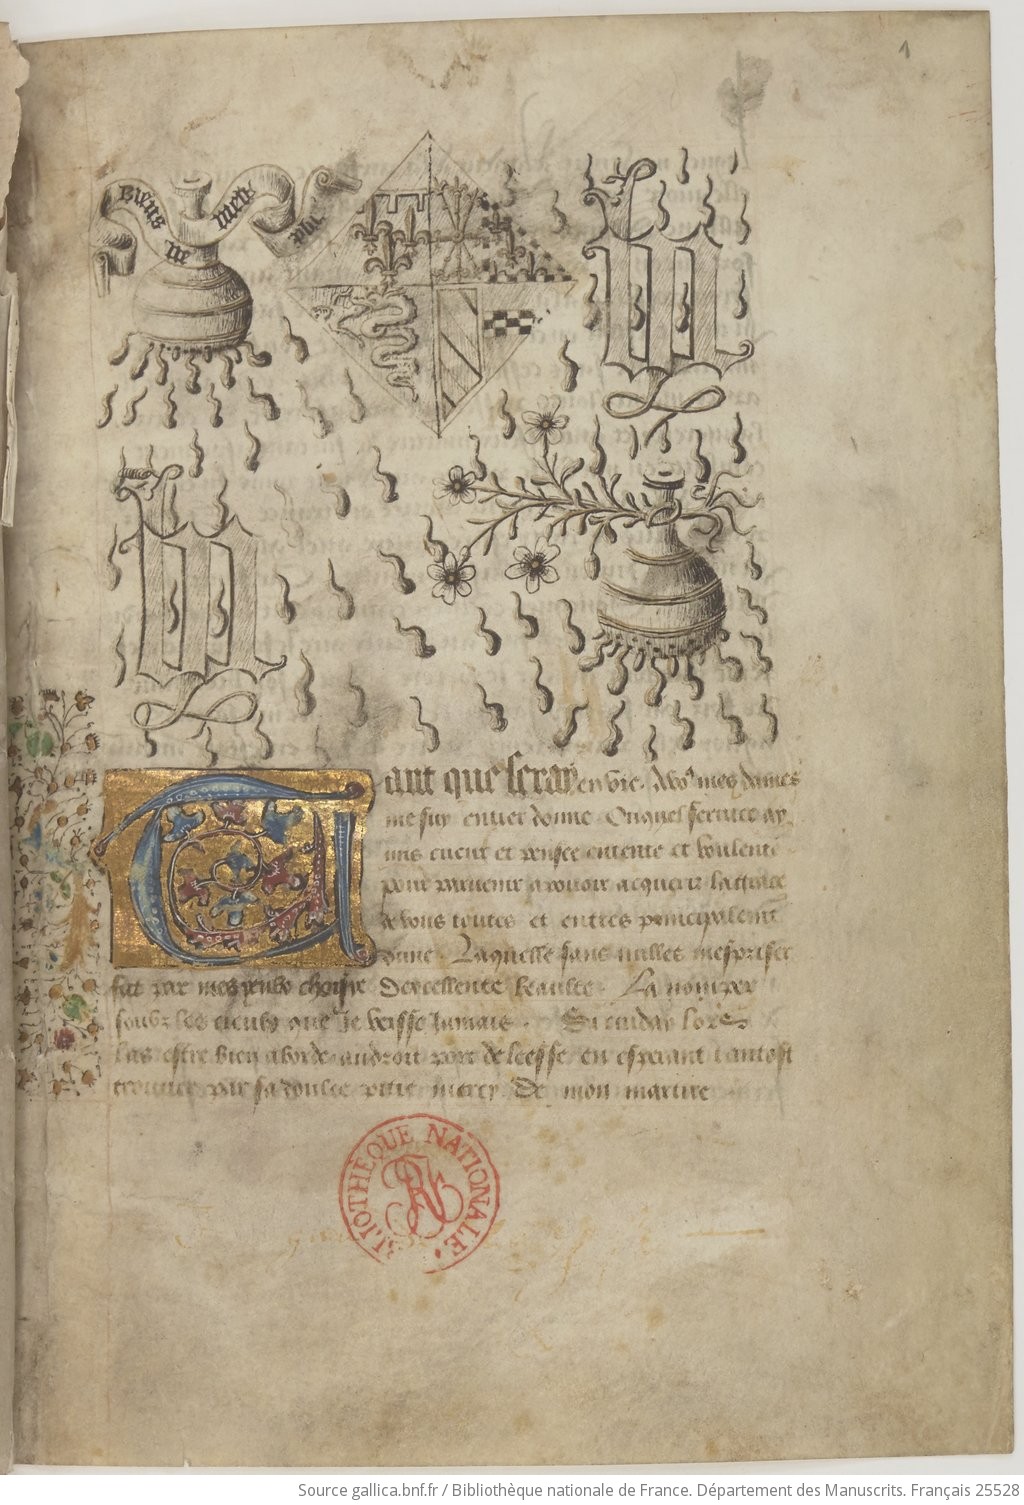 1
Riens ne men plai
Tant que seray en vie. A vo9 mes dames
me suy entier donne. Ouquel service ay
mis cueur et pensee entente et voulente
pour parvenir a povoir acquerir la grace
de vous toutes et entres principalement
dune. Laquelle sans nulles mespriser
fut par mes choisie dexcellente beaulte. La nomper
soubz les cieulx que Je veisse Jamais. Si cuiday lors
las estre bien aborde au droit port de leesse en esperant tantost
trouver par sa doulce pitie mercy De mon martire
BIBLIOTHÈQUE NATIONALE
Source gallica.bnf.fr / Bibliothèque nationale de France. Département des Manuscrits. Français 25528